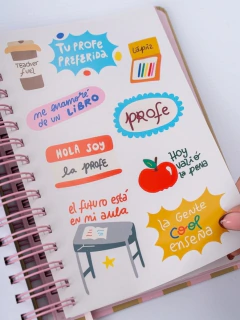 TEACHER
FUEL
TU PROFE
PREFERIDA
Lápiz
me enamoré
de un LIBRO
profe
HOLA SOY
la profe
Hoy
valió
la pena
el futuro está
en mi aula
la gente
cool
enseña